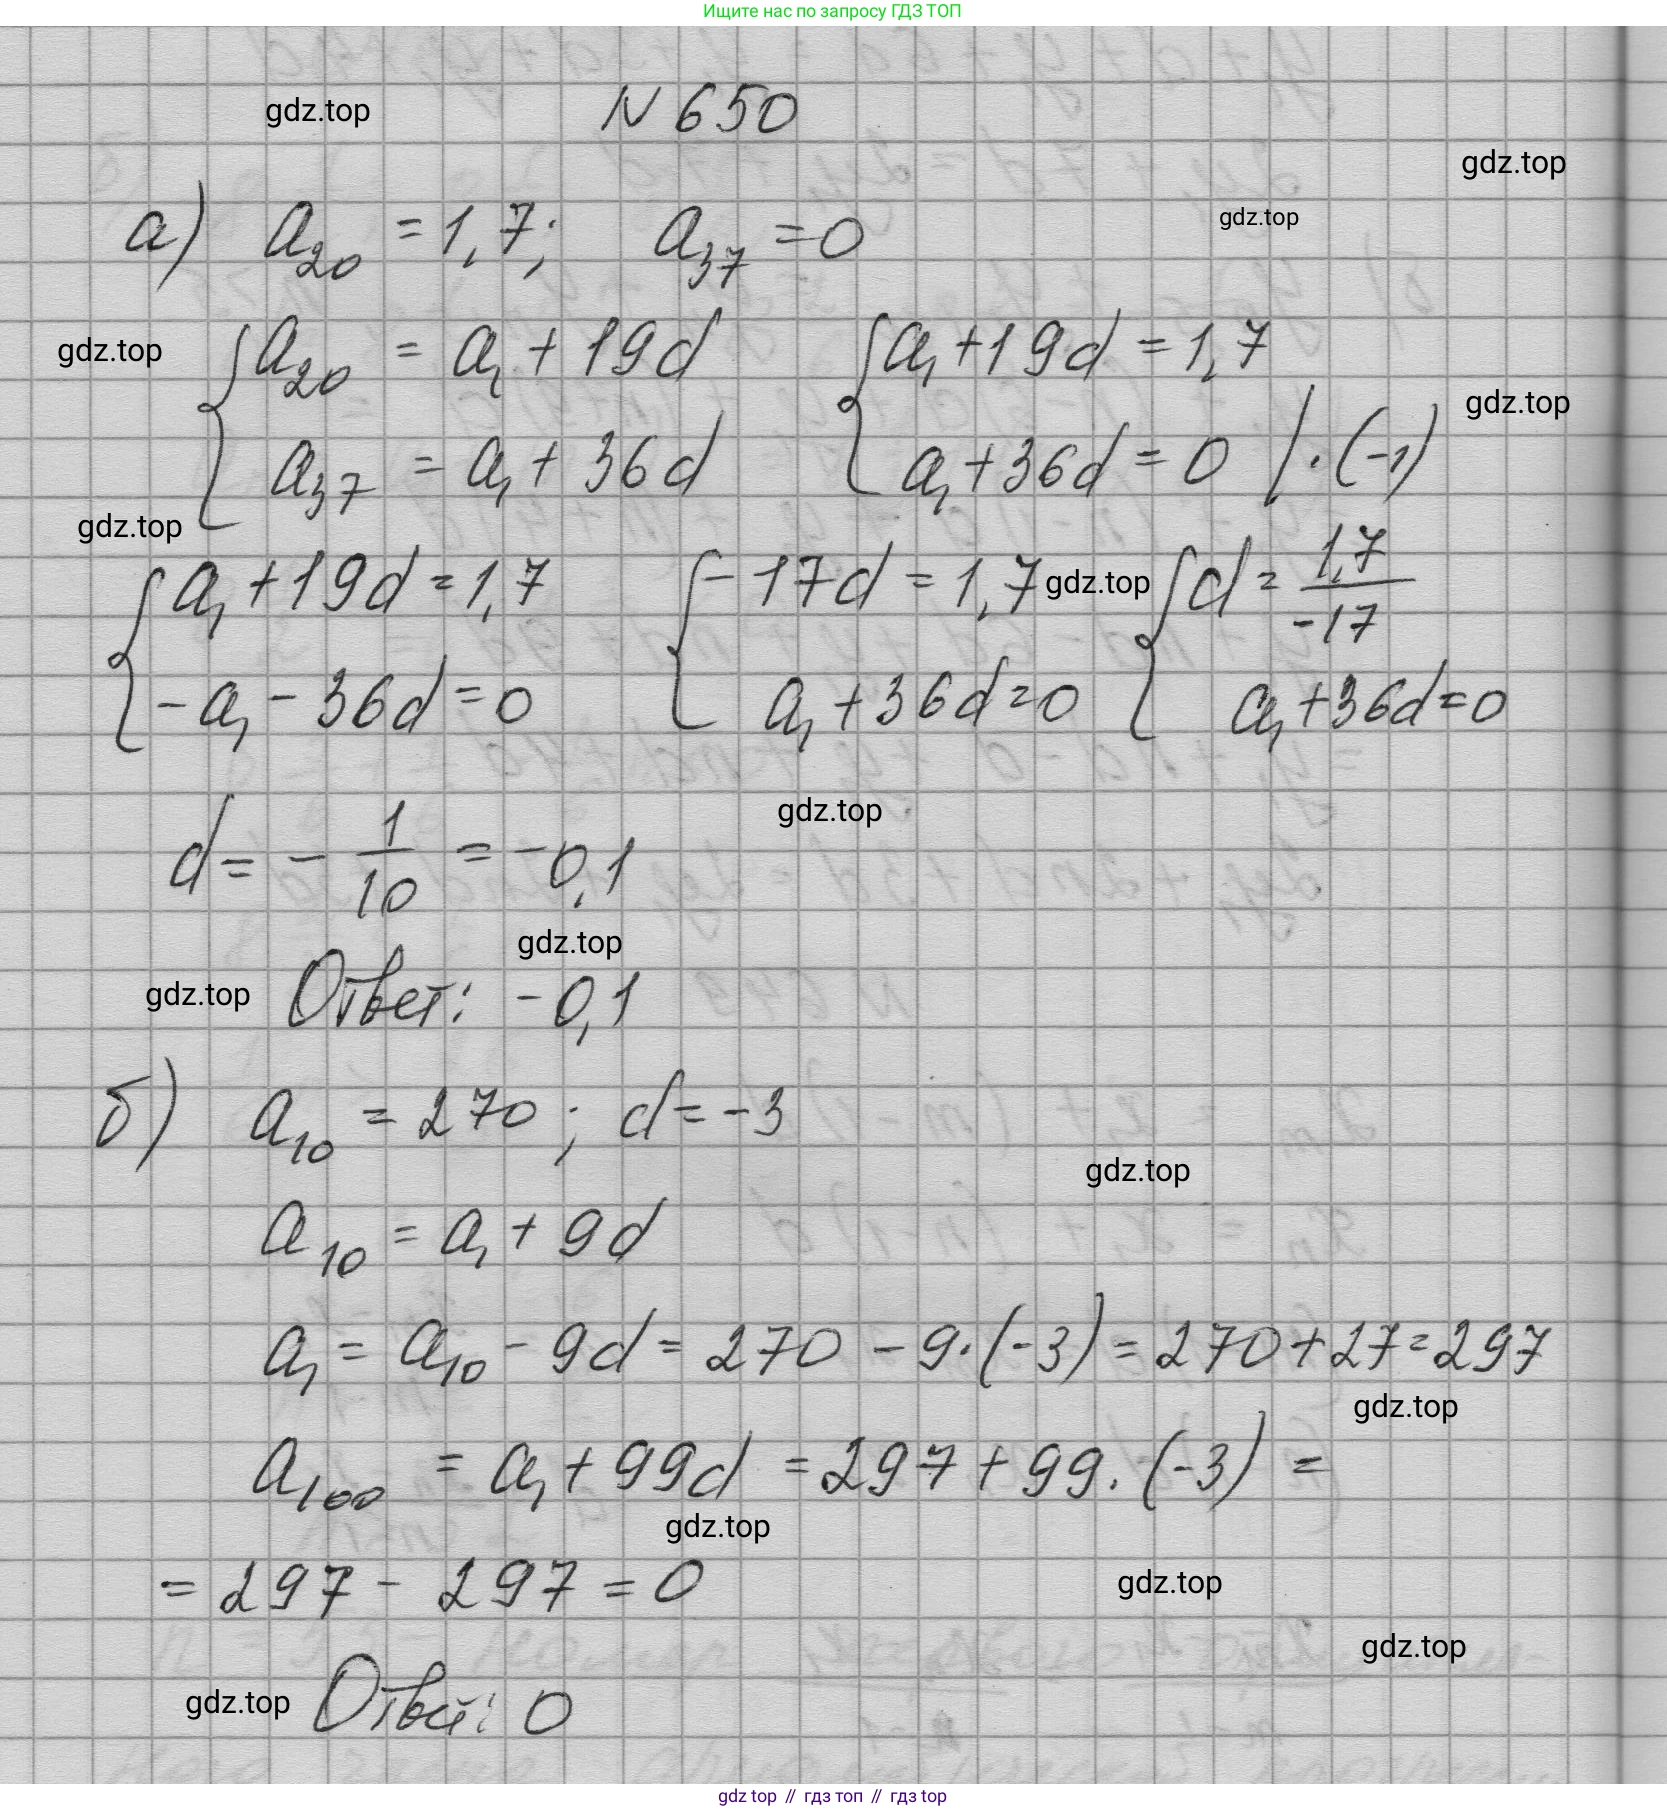 Ищите нас по запросу ГДЗ ТОП
gdz.top N 650
gdz.top
а) a₂₀ = 1,7; a₃₇ = 0 gdz.top
gdz.top { a₂₀ = a₁ + 19d { a₁ + 19d = 1,7
a₃₇ = a₁ + 36d a₁ + 36d = 0 | · (-1) gdz.top
gdz.top
{ a₁ + 19d = 1,7 { -17d = 1,7 gdz.top { d = 1,7/-17
-a₁ - 36d = 0 a₁ + 36d = 0 a₁ + 36d = 0
gdz.top
d = - 1/10 = -0,1
gdz.top
gdz.top Ответ: -0,1
б) a₁₀ = 270; d = -3
gdz.top
a₁₀ = a₁ + 9d
a₁ = a₁₀ - 9d = 270 - 9·(-3) = 270 + 27 = 297
gdz.top
a₁₀₀ = a₁ + 99d = 297 + 99·(-3) =
gdz.top
= 297 - 297 = 0 gdz.top
gdz.top
gdz.top Ответ: 0
gdz top // гдз топ // гдз top